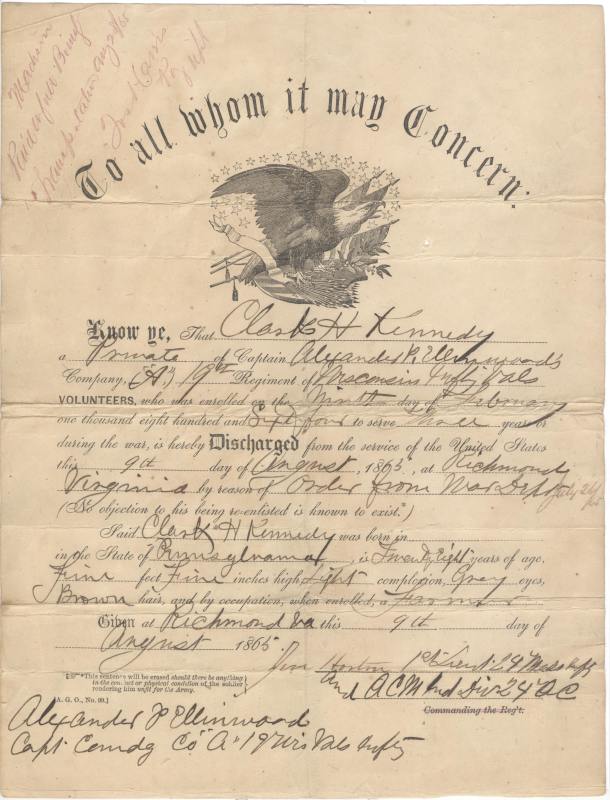 Madison
Paid in full Being
Transportation Aug 29/65
Paymr USA
To all whom it may Concern:
Know ye, That Clark H Kennedy
a Private of Captain Alexander P. Ellinwood's
Company, ("A",) 19th Regiment of Wisconsin Infty Vols
VOLUNTEERS, who was enrolled on the Ninth day of February
one thousand eight hundred and Sixty four to serve three years or
during the war, is hereby Discharged from the service of the United States
this 9th day of August, 1865, at Richmond
Virginia by reason of Order from War Dept July 26/65
(No objection to his being re-enlisted is known to exist.)
Said Clark H Kennedy was born in
in the State of Pennsylvania, is Twenty Eight years of age,
Five feet Five inches high, Light complexion, Grey eyes,
Brown hair, and by occupation, when enrolled, a Farmer
Given at Richmond Va this 9th day of
August 1865.
1st Lieut 24 Mass Infty
and A C M 3rd Div 24 A C
Commanding the Reg't.
*This sentence will be erased should there be anything
in the conduct or physical condition of the soldier
rendering him unfit for the Army.
[A. G. O., No. 99.]
Alexander P Ellinwood
Capt Comdg Co "A" 19 Wis Vols Infty